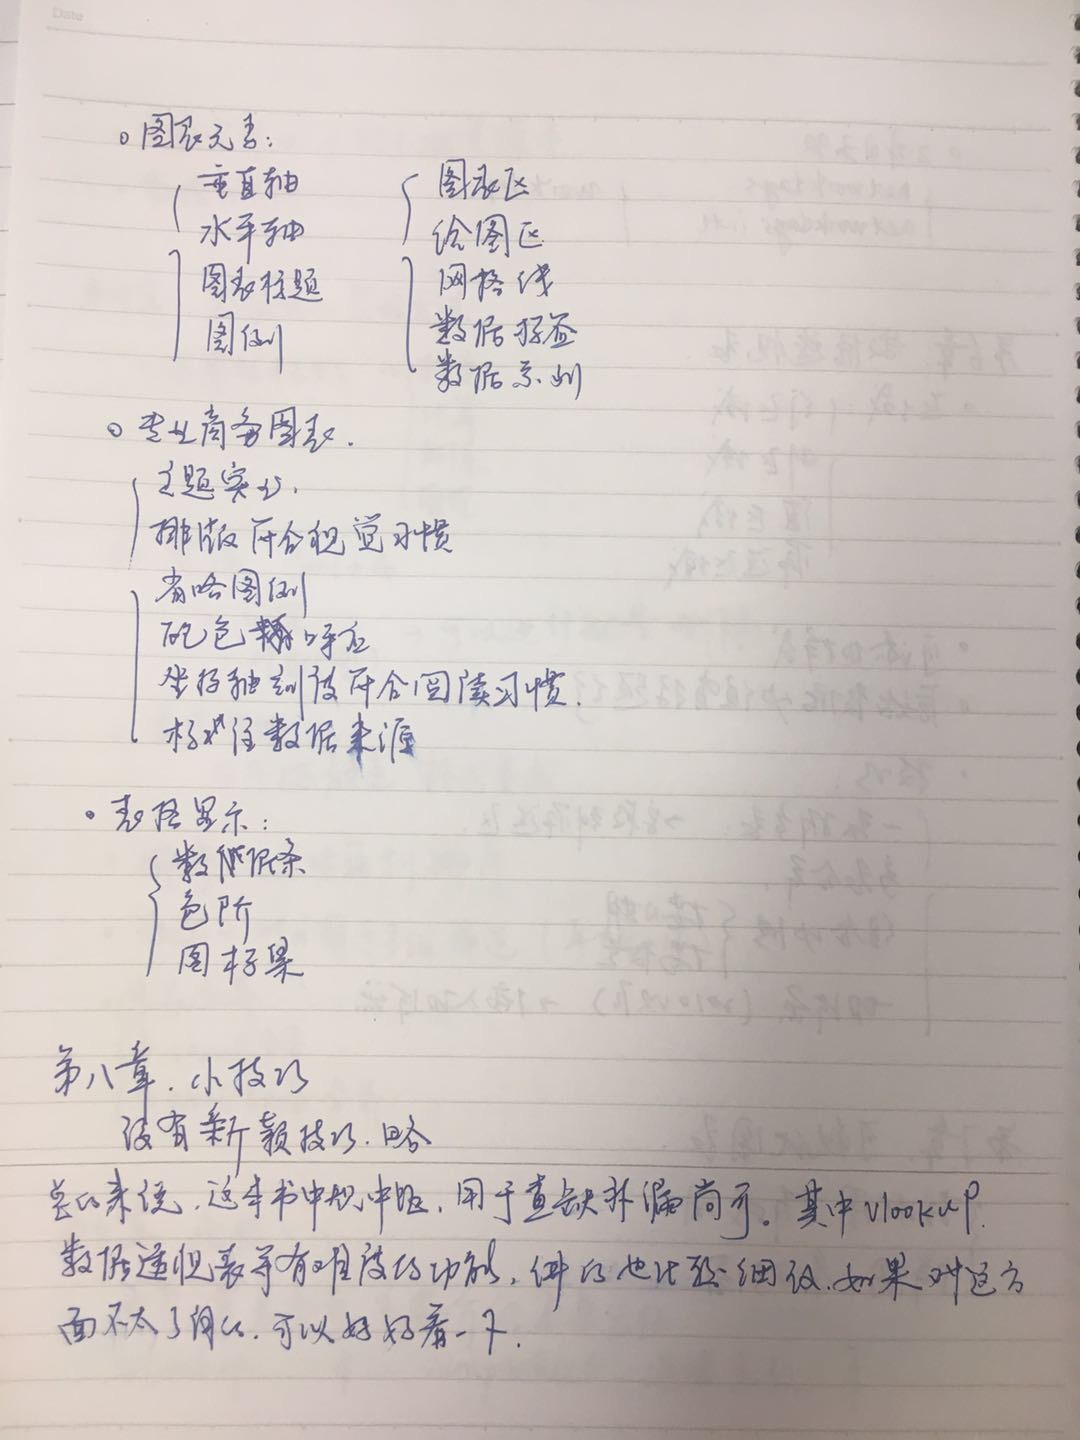 Date
○ 图表元素:
垂直轴
水平轴
图表标题
图例
图表区
绘图区
网格线
数据标签
数据系列
○ 专业商务图表.
主题突出.
排版符合视觉习惯
省略图例
配色 呼应
坐标轴刻度符合阅读习惯.
标注数据来源
• 表格显示:
数据条
色阶
图标集
第八章. 小技巧
没有新颖技巧. 略
总的来说, 这本书中规中矩, 用于查缺补漏尚可。其中vlookup.
数据透视表等有难度的功能, 讲的也比较细致. 如果对这方
面不太了解的. 可以好好看一下.